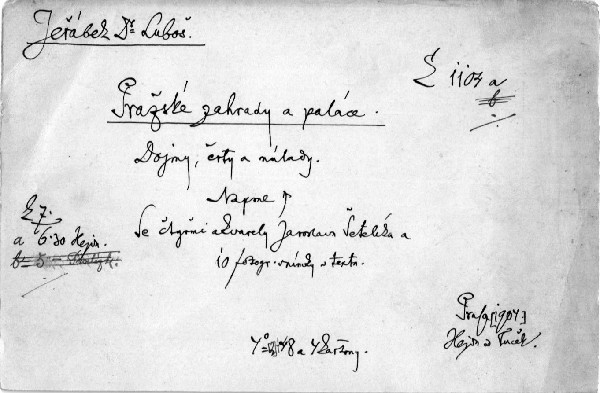 Jeřábek Dr Luboš.
Ž 1103 a
b
Pražské zahrady a paláce.
Dojmy, črty a nálady.
Napsal
Se čtyřmi akvarely Jaroslava Šetelíka a
10 fotogr. snímky v textu.
Ž 7.
a 6·30 Hejn.
b = 5 =
Praha [1904]
Hejda a Tuček.
4° 48 a 4 kartony.